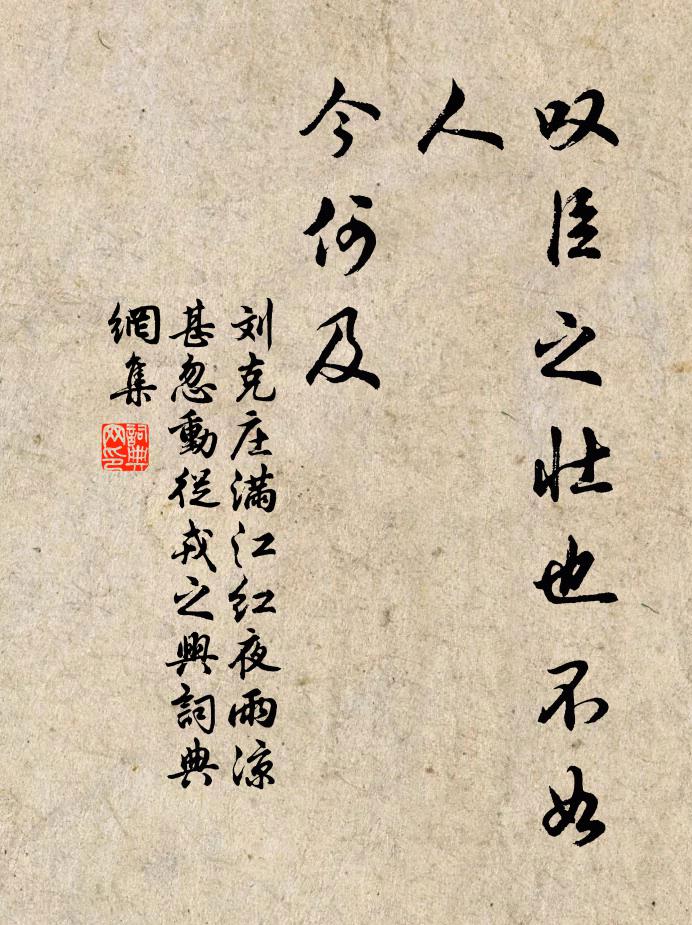 叹臣之壮也不如
人
今何及
刘克庄满江红夜雨凉
甚忽動從戎之興詞典
網集
詞典
网印